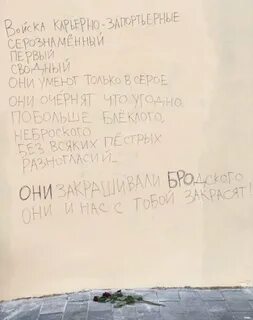 Войска карьерно-запортьерные
серознамённый
первый
сводный
они умеют только в серое
они очернят что угодно
побольше блёклого
неброского
без всяких пёстрых
разногласий...
ОНИ ЗАКРАШИВАЛИ БРОдского
ОНИ И НАС С ТОБОЙ ЗАКРАСЯТ!